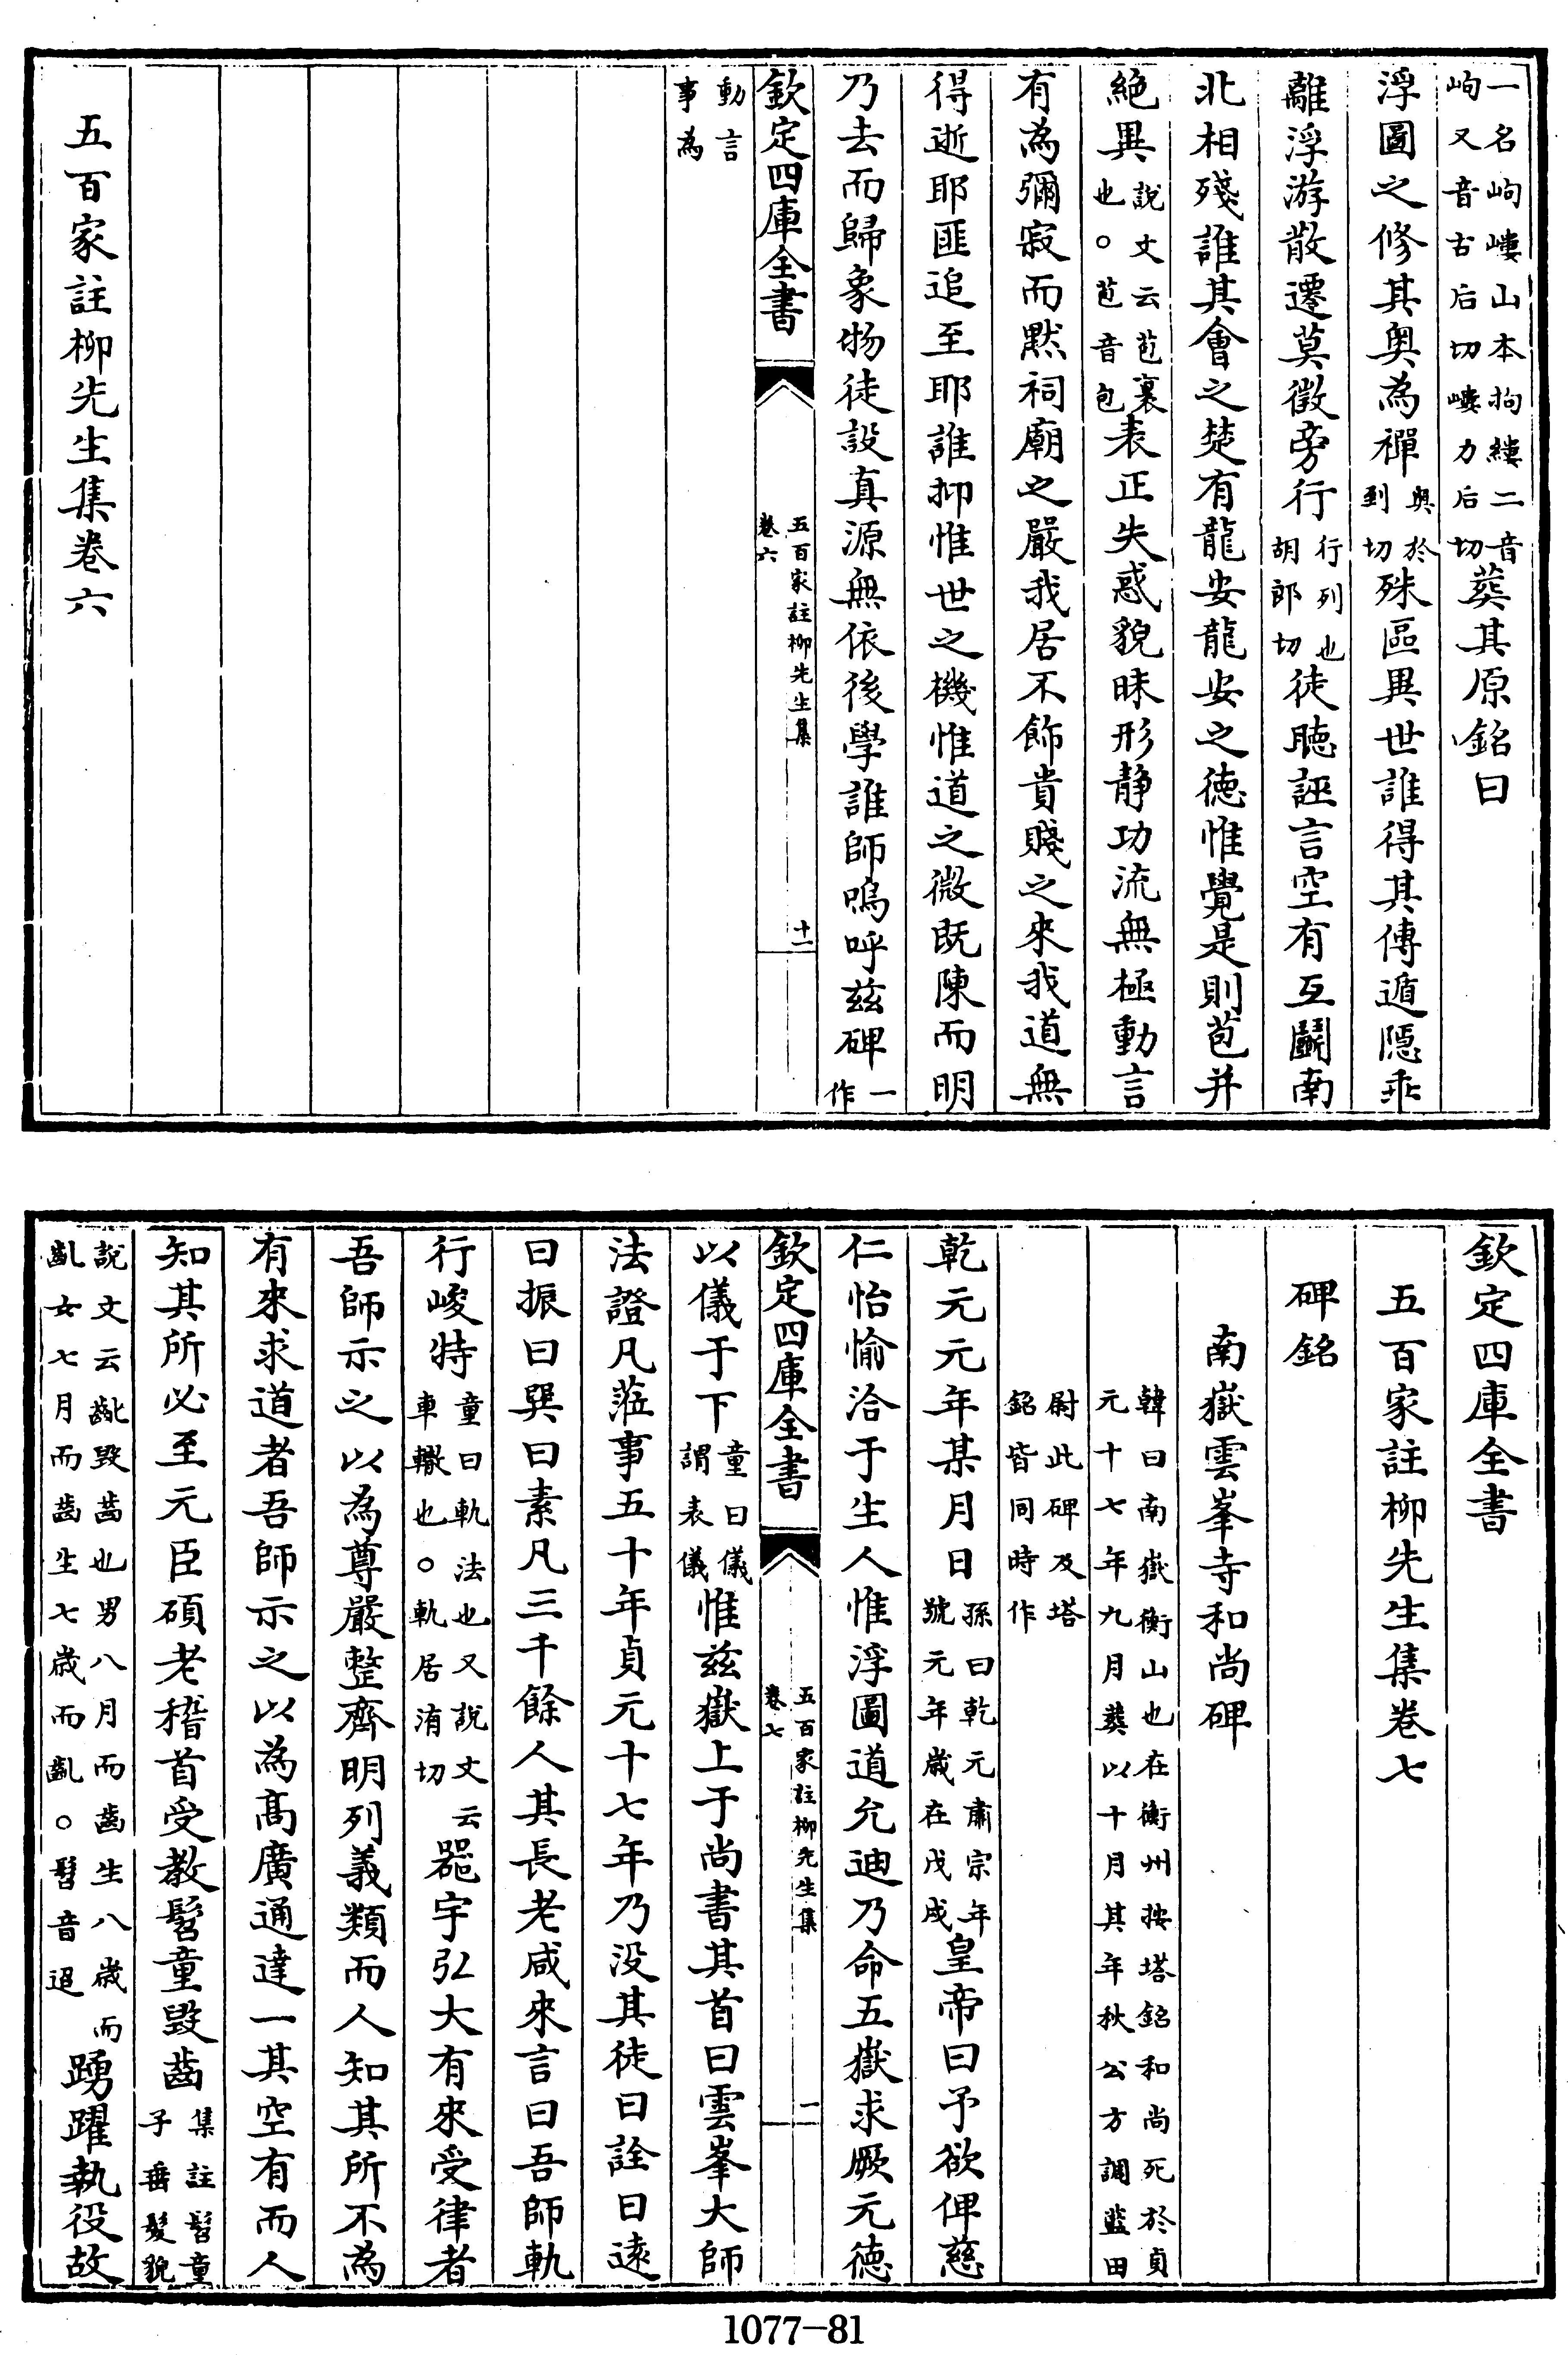 一名岣嶁山本拘縷二音岣又音古后切嶁力后切葬其原銘曰
浮圖之修其奥為禪奥於到切殊區異世誰得其傳遁隠乖
離浮游散遷莫徵旁行行列也胡郎切徒聽誣言空有互鬬南
北相殘誰其會之楚有龍安龍安之徳惟覺是則苞并
絶異說文云苞裹也○苞音包表正失惑貌昧形静功流無極動言
有為彌寂而黙祠廟之嚴我居不飾貴賤之來我道無
得逝耶匪追至耶誰抑惟世之機惟道之微既陳而明
乃去而歸象物徒設真源無依後學誰師嗚呼兹碑一作
欽定四庫全書
五百家註柳先生集
卷六
十一
動言事為
五百家註柳先生集卷六
欽定四庫全書
五百家註柳先生集卷七
碑銘
南嶽雲峯寺和尚碑
韓曰南嶽衡山也在衡州按塔銘和尚死於貞元十七年九月葬以十月其年秋公方調藍田
尉此碑及塔銘皆同時作
乾元元年某月日孫曰乾元肅宗年號元年歳在戊戌皇帝曰予欲俾慈
仁怡愉洽于生人惟浮圖道允迪乃命五嶽求厥元徳
欽定四庫全書
五百家註柳先生集
卷七
一
以儀于下童曰儀謂表儀惟兹嶽上于尚書其首曰雲峯大師
法證凡蒞事五十年貞元十七年乃没其徒曰詮曰遠
曰振曰巽曰素凡三千餘人其長老咸來言曰吾師軌
行峻特童曰軌法也又說文云車轍也○軌居洧切器宇弘大有來受律者
吾師示之以為尊嚴整齊明列義類而人知其所不為
有來求道者吾師示之以為髙廣通達一其空有而人
知其所必至元臣碩老稽首受教髫童毀齒集註髫童子垂髮貌
說文云齔毀齒也男八月而齒生八歳而齔女七月而齒生七歳而齔○髫音迢踴躍執役故
1077-81